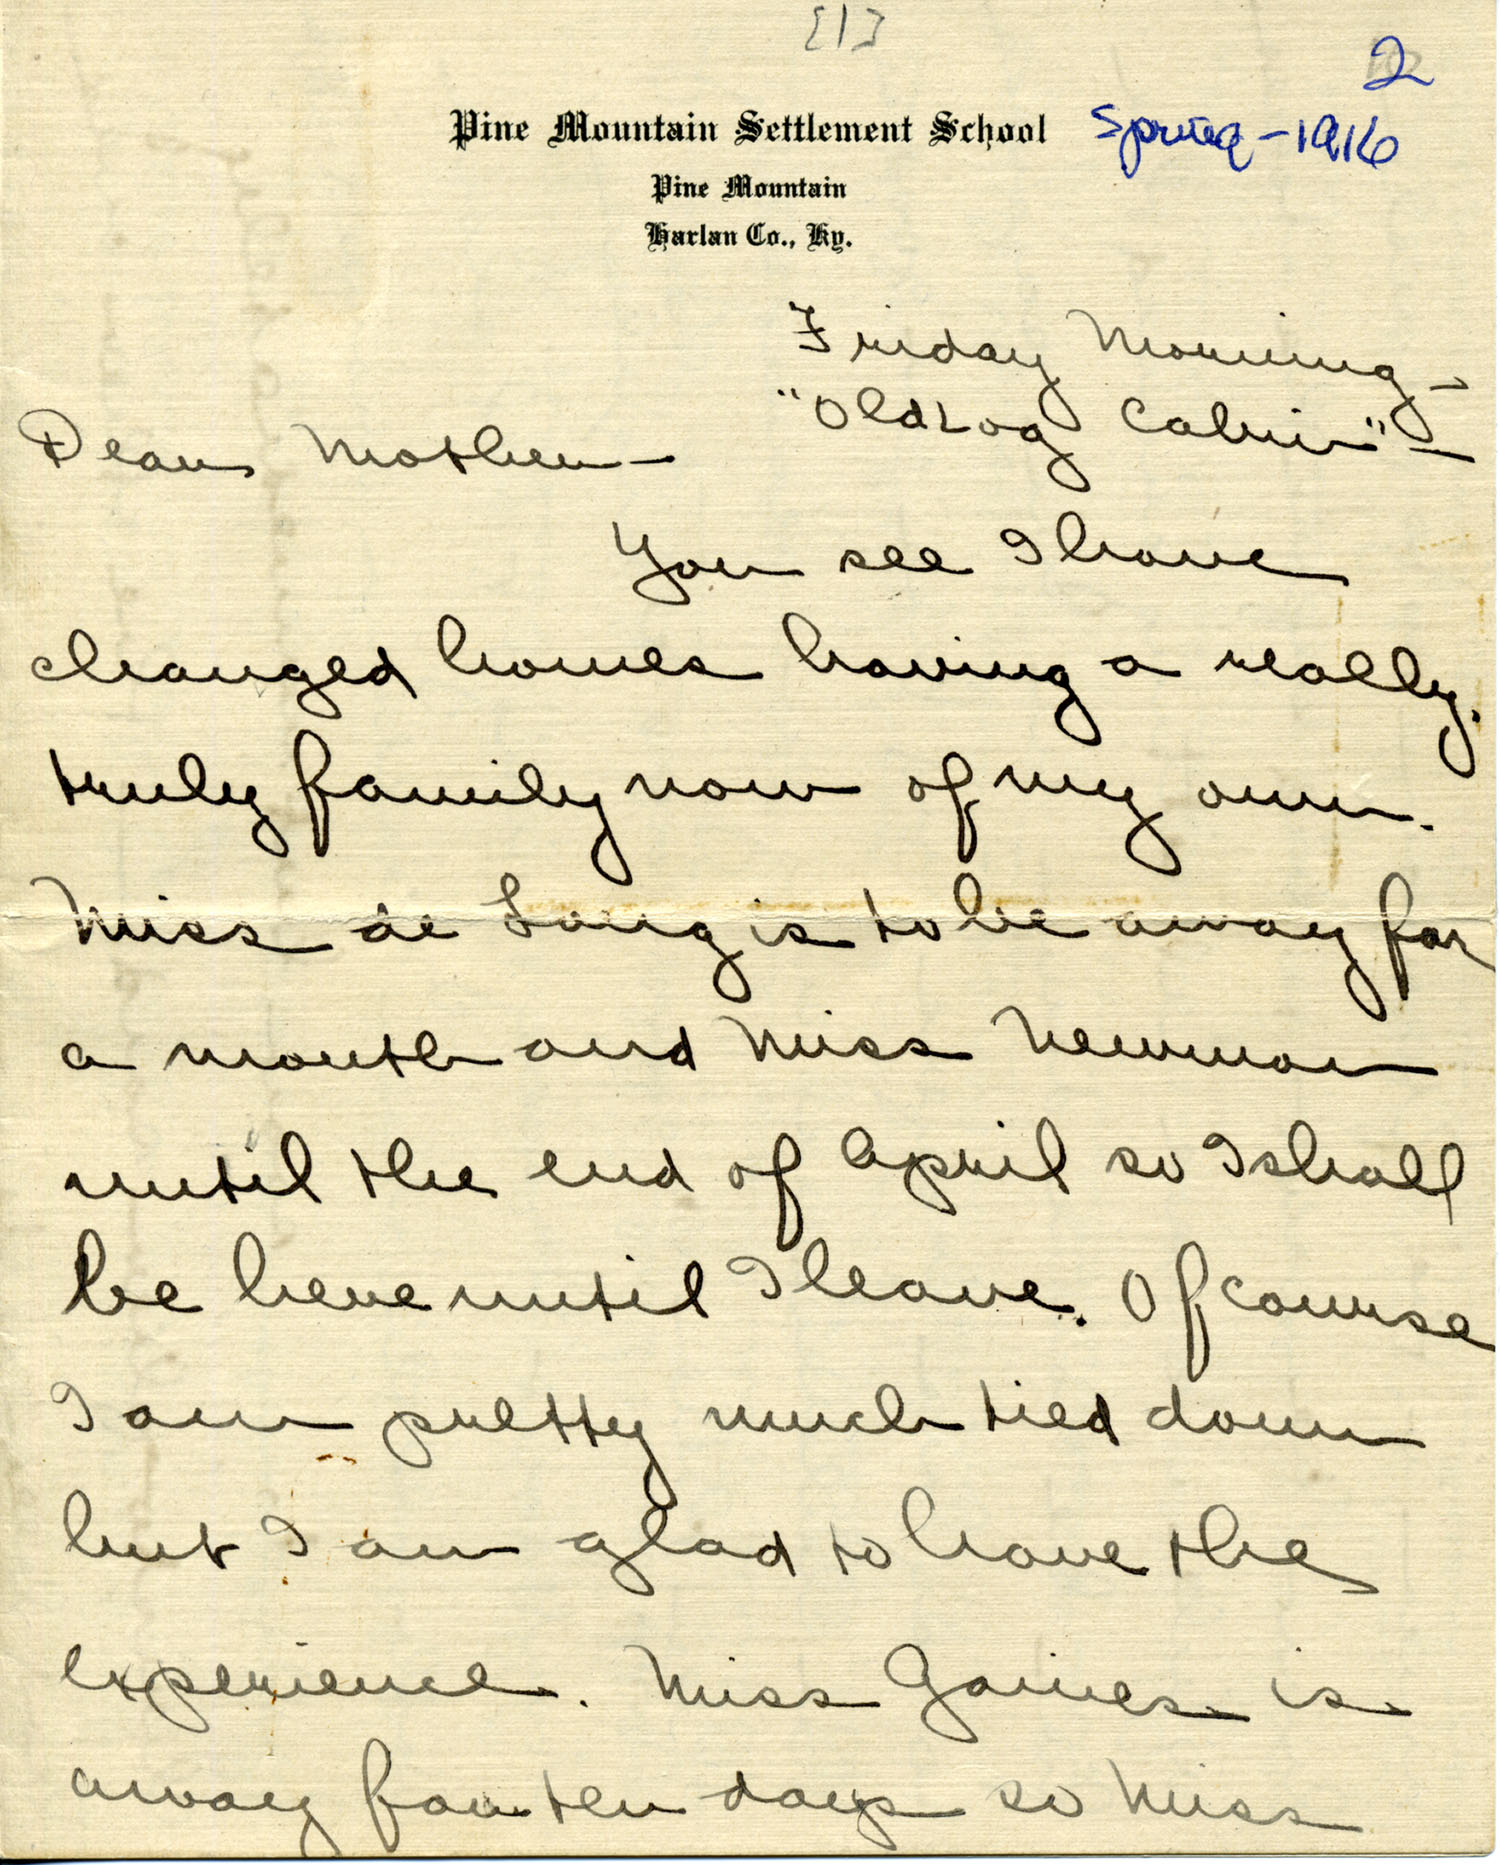 [1]
2
Pine Mountain Settlement School
Spring - 1916
Pine Mountain
Harlan Co., Ky.
Friday Morning -
"Old Log Cabin" -
Dear Mother -
You see I have
changed homes having a really.
truly family now of my own.
Miss de Long is to be away for
a month and Miss Newman
until the end of April so I shall
be here until I leave. Of course
I am pretty much tied down
but I am glad to have the
experience. Miss Gaines is
away for ten days so Miss